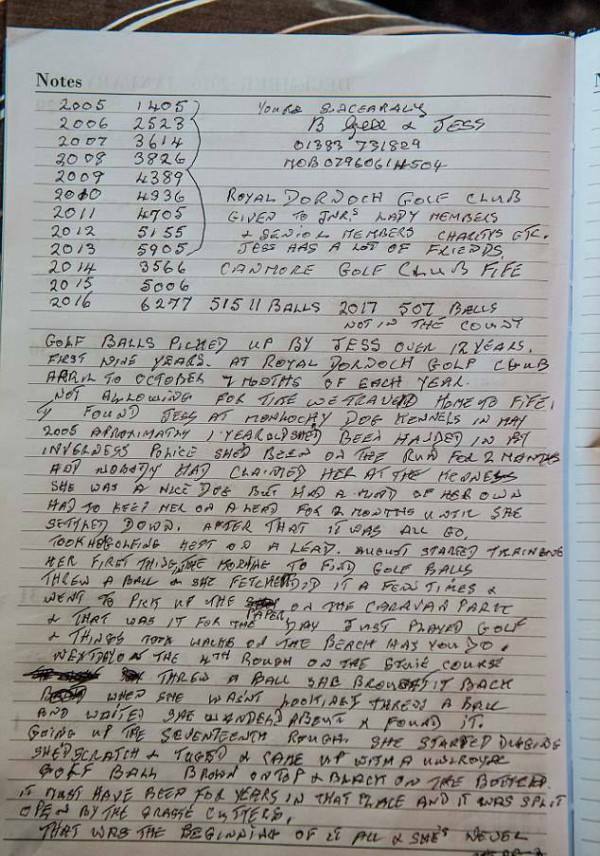 Notes
2005 1405 YOURS SINCEARALY
2006 2523 B & JESS
2007 3614 01383 731829
2008 3826 MOB 07960614504
2009 4389
2010 4936 ROYAL DORNOCH GOLF CLUB
2011 4705 GIVEN TO JNR'S LADY MEMBERS
2012 5155 & SENIOR MEMBERS CHARITYS ETC.
2013 5905 JESS HAS A LOT OF FRIENDS.
2014 3566 CANMORE GOLF CLUB FIFE
2015 5006
2016 6277 51511 BALLS 2017 507 BALLS
NOT IN THE COUNT
GOLF BALLS PICKED UP BY JESS OVER 12 YEARS.
FIRST NINE YEARS. AT ROYAL DORNOCH GOLF CLUB
APRIL TO OCTOBER 7 MONTHS OF EACH YEAR.
NOT ALLOWING FOR TIME WE TRAVED HOME TO FIFE.
FOUND JESS AT MONLOCHY DOG KENNELS IN MAY
2005 APROXIMATLY 1 YEAR OLD SHED BEEN HANDED IN BY
INVERNESS POLICE SHED BEEN ON THE RUN FOR 2 MONTHS
AND NOBODY HAD CLAIMED HER AT THE KENNESS
SHE WAS A NICE DOG BUT HAD A MIND OF HER OWN
HAD TO KEEP HER ON A LEAD FOR 2 MONTHS UNTIL SHE
SETTLED DOWN. AFTER THAT IT WAS ALL GO.
TOOK HER GOLFING KEPT ON A LEAD. AUGUST STARTED TRAINING
HER FIRST THING IN THE MORNING TO FIND GOLF BALLS
THREW A BALL & SHE FETCHED DID IT A FEW TIMES &
WENT TO PICK UP THE PAPER ON THE CARAVAN PARK
& THAT WAS IT FOR THE DAY JUST PLAYED GOLF
& THINGS TOOK WALKS ON THE BEACH HAS YOU DO.
NEXT DAY ON THE 4TH ROUGH ON THE STUIE COURSE
THREW A BALL SHE BROUGHT IT BACK
WHEN SHE WASNT LOOKING THREW A BALL
AND WAITED SHE WANDERED ABOUT & FOUND IT.
GOING UP THE SEVENTEENTH ROUGH. SHE STARTED DIGGING
SHED SCRATCH & TUGED & CAME UP WITH A UNIROYAL
GOLF BALL BROWN ON TOP & BLACK ON THE BOTTOM.
IT MUST HAVE BEEP FOR YEARS IN THAT PLACE AND IT WAS SPLIT
OPEN BY THE GRASSE CUTTERS.
THAT WAS THE BEGINNING OF IT ALL & SHE'S NEVER